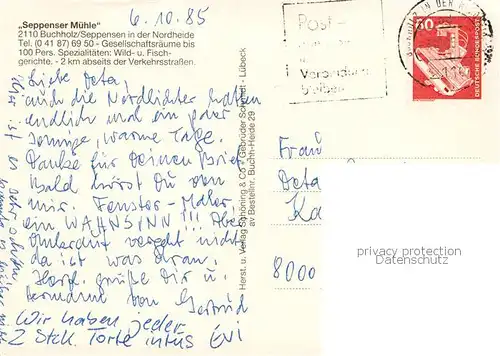 6.10.85
„Seppenser Mühle"
2110 Buchholz/Seppensen in der Nordheide
Tel. (0 41 87) 69 50 - Gesellschaftsräume bis
100 Pers. Spezialitäten: Wild- u. Fisch-
gerichte. - 2 km abseits der Verkehrsstraßen.
Liebe Deta,
auch die Nordlichter hatten
endlich mal ein paar
sonnige, warme Tage.
Danke für Deinen Brief
Bald hörst Du von
mir. Fenster-Maler,
ein WAHNSINN!!! Aber
Unkraut vergeht nicht
da ist was dran.
Herzl. grüße Dir u.
Hermann von Gertrud
Wir haben jeder
2 Stck. Torte intus Evi
Herst. u. Verlag Schöning & Co + Gebrüder Schmidt, Lübeck
Bestellnr. Buchh-Heide 29
Post-
bleiben
60
DEUTSCHE BUNDESPOST
Frau
Deta
Ka
8000
privacy protection
Datenschutz